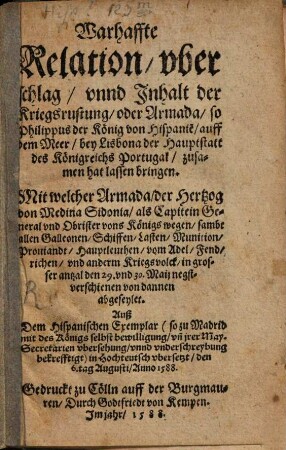 Warhaffte
Relation/ vber
schlag/ vnnd Jnhalt der
Kriegßrustung/ oder Armada/ so
Philippus der König von Hispaniẽ/ auff
dem Meer/ bey Lisbona der Hauptstatt
des Königreichs Portugal/ zusa-
men hat lassen bringen.
Mit welcher Armada/ der Hertzog
von Medina Sidonia/ als Capitein Ge-
neral vnd Obrister vons Königs wegen/ sambt
allen Galleonen/ Schiffen/ Lasten/ Munition/
Prouiandt/ Hauptleuthen/ vom Adel/ Fend-
richen/ vnd anderm Kriegsvolck/ in gros-
ser antzal den 29. vnd 30. Maij negst-
verschienen von dannen
abgeseylet.
Auß
Dem Hispanischen Exemplar (so zu Madrid
mit des Königs selbst bewilligung/ vñ jrer May.
Secretarien vbersehung/ vnnd vnderschreybung
bekrefftigt) in Hochteutsch vbersetzt/ den
6. tag Augusti/ Anno 1588.
Gedruckt zu Cölln auff der Burgmau-
ren/ Durch Godtfriedt von Kempen.
Jm jahr/ 1588.